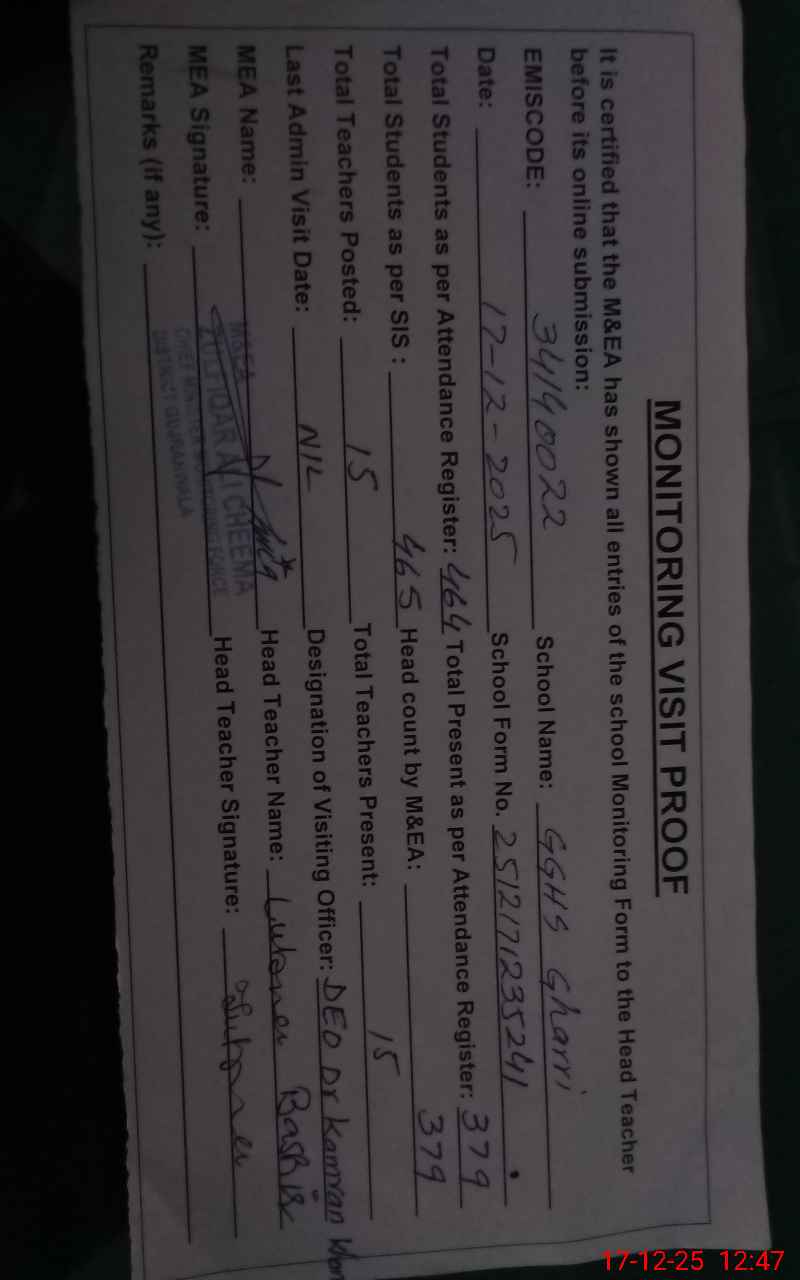 MONITORING VISIT PROOF
It is certified that the M&EA has shown all entries of the school Monitoring Form to the Head Teacher
before its online submission:
EMISCODE: 34140022 School Name: GGHS Gharri
Date: 17-12-2025 School Form No. 2512171235241
Total Students as per Attendance Register: 464 Total Present as per Attendance Register: 379
Total Students as per SIS : 465 Head count by M&EA: 379
Total Teachers Posted: 15 Total Teachers Present: 15
Last Admin Visit Date: NIL Designation of Visiting Officer: DEO Dr Kamran
MEA Name: Head Teacher Name: Bashir
MEA Signature: Head Teacher Signature:
M&EA
ZULFIQAR ALI CHEEMA
CHIEF MINISTER MONITORING FORCE
DISTRICT GUJRANWALA
Remarks (if any):
17-12-25 12:47